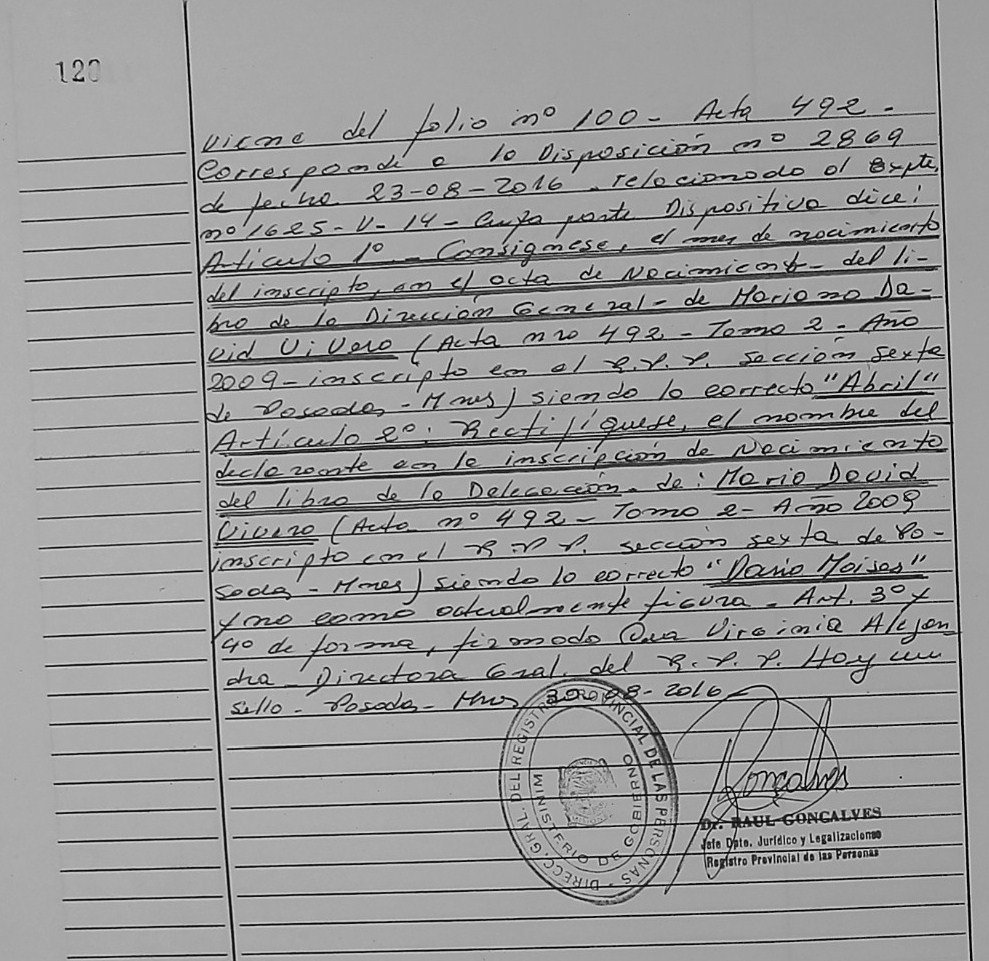 120
Viene del folio nº 100 - Acta 492 -
Corresponde a la Disposición nº 2869
de fecha 23-08-2016 - relacionado al Expte.
nº 1625-V-14 - Cuya parte Dispositiva dice:
Artículo 1º - Consígnese, el mes de nacimiento
del inscripto, en el acta de Nacimiento - del li-
bro de la Dirección General - de Mariano Da-
vid Vivero (Acta nro 492 - Tomo 2 - Año
2009 - inscripto en el R.P.P. sección sexta
de Posadas - Mnes) siendo lo correcto "Abril"
Artículo 2º: Rectifíquese, el nombre del
declarante en la inscripción de Nacimiento
del libro de la Delegación - de: Mario David
Vivero (Acta nº 492 - Tomo 2 - Año 2009
inscripto en el R.P.P. sección sexta de Po-
sadas - Mnes) siendo lo correcto "Dario Moises"
y no como actualmente figura - Art. 3º y
4º de forma, firmado Virginia Alejan-
dra Directora Gral. del R.P.P. Hay un
sello - Posadas - Mnes 30-08-2016
DIRECC. GRAL. DEL REGISTRO PROVINCIAL DE LAS PERSONAS
MINISTERIO DE GOBIERNO
Dr. RAUL GONCALVES
Jefe Dpto. Jurídico y Legalizaciones
Registro Provincial de las Personas